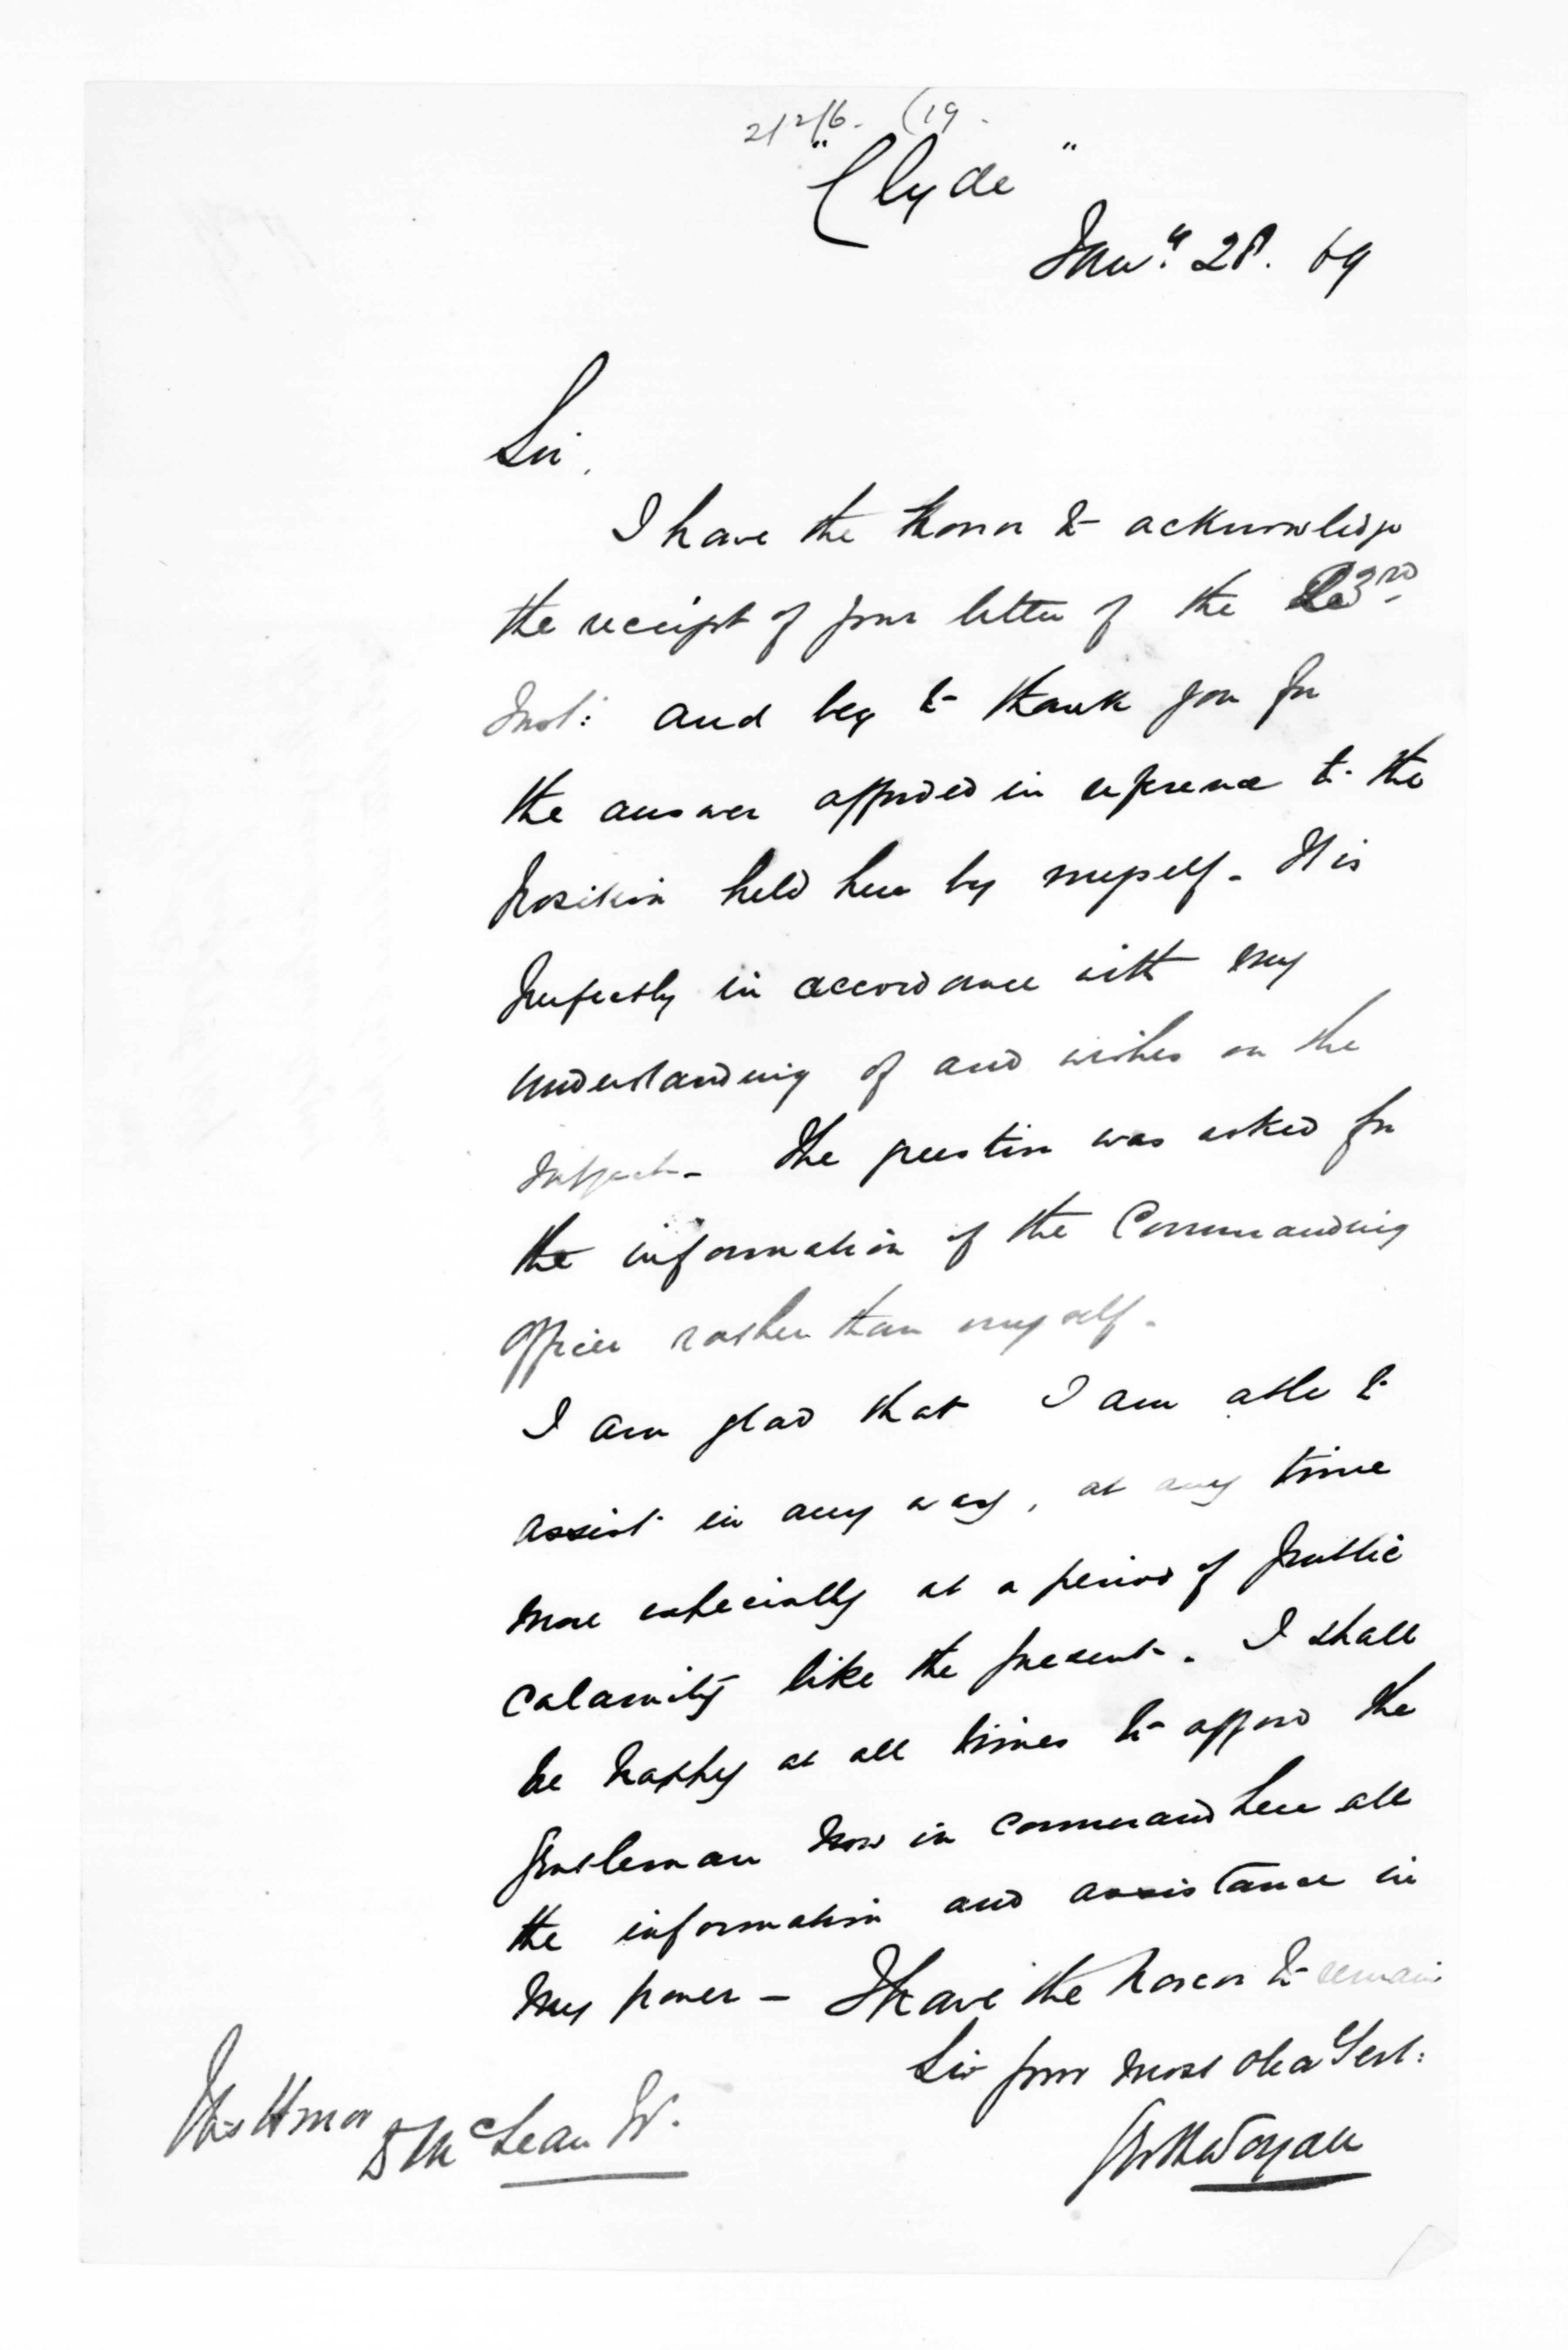 2/2/6. (19.
"Clyde"
Jany. 28. 69
Sir,
I have the honor to acknowledge
the receipt of your letter of the 23rd
Inst: and beg to thank you for
the answer afforded in reference to the
position held here by myself. It is
perfectly in accordance with my
understanding of and wishes on the
subject. The question was asked for
the information of the Commanding
Officer rather than myself.
I am glad that I am able to
assist in any way, at any time
more especially at a period of public
calamity like the present. I shall
be happy at all times to afford the
gentleman now in command here all
the information and assistance in
my power - I have the honor to remain
Sir your most obed Servt:
His Honor
D McLean